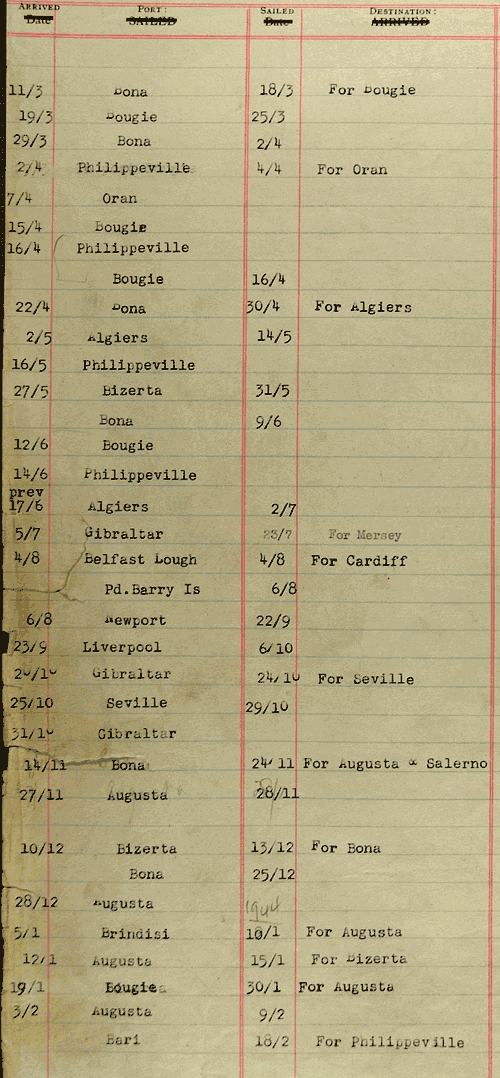 ARRIVED PORT: SAILED DESTINATION:
Date SAILED Date ARRIVED
11/3 Bona 18/3 For Bougie
19/3 Bougie 25/3
29/3 Bona 2/4
2/4 Philippeville 4/4 For Oran
7/4 Oran
15/4 Bougie
16/4 Philippeville
Bougie 16/4
22/4 Bona 30/4 For Algiers
2/5 Algiers 14/5
16/5 Philippeville
27/5 Bizerta 31/5
Bona 9/6
12/6 Bougie
14/6 Philippeville
prev
17/6 Algiers 2/7
5/7 Gibraltar 23/7 For Mersey
4/8 Belfast Lough 4/8 For Cardiff
Pd.Barry Is 6/8
6/8 Newport 22/9
23/9 Liverpool 6/10
20/10 Gibraltar 24/10 For Seville
25/10 Seville 29/10
31/10 Gibraltar
14/11 Bona 24/11 For Augusta & Salerno
27/11 Augusta 28/11
10/12 Bizerta 13/12 For Bona
Bona 25/12
28/12 Augusta
1944
5/1 Brindisi 10/1 For Augusta
12/1 Augusta 15/1 For Bizerta
19/1 Bougie 30/1 For Augusta
3/2 Augusta 9/2
Bari 18/2 For Philippeville